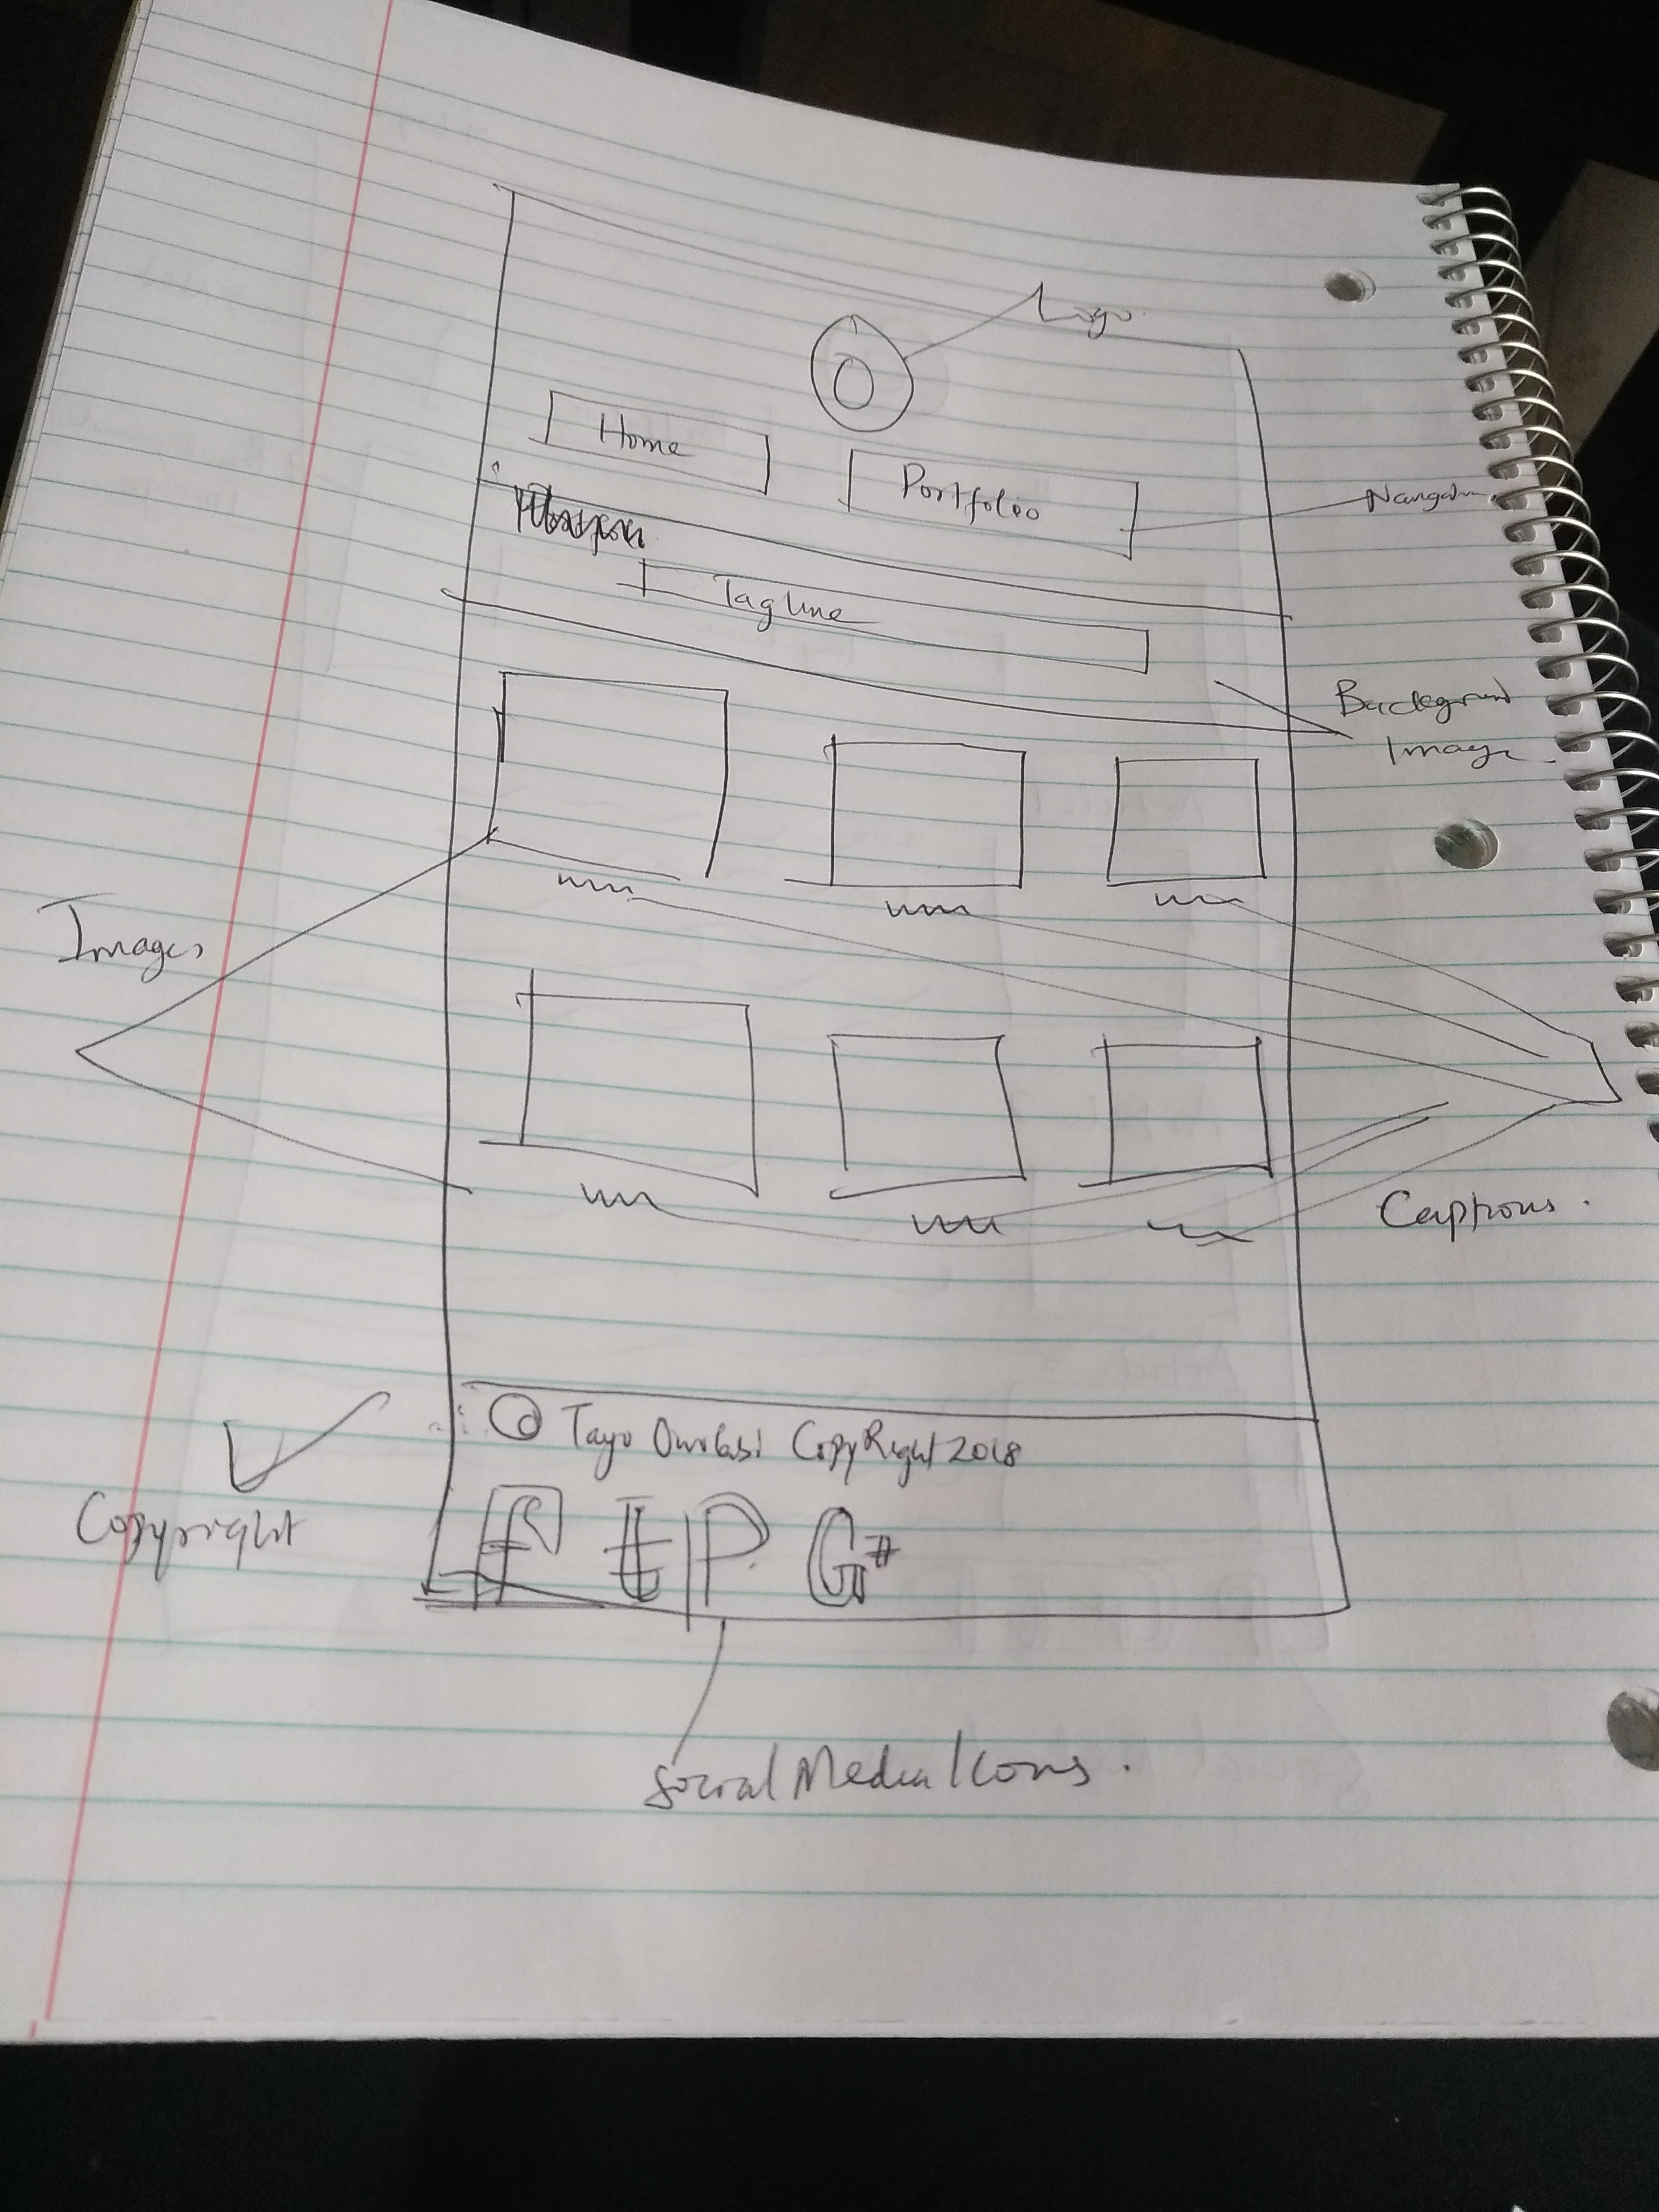 Logo
O
Home
Portfolio
Tagline
Background
Image
Images
Captions.
© Tayo CopyRight 2018
Copyright
f t P G+
Social Media Icons.